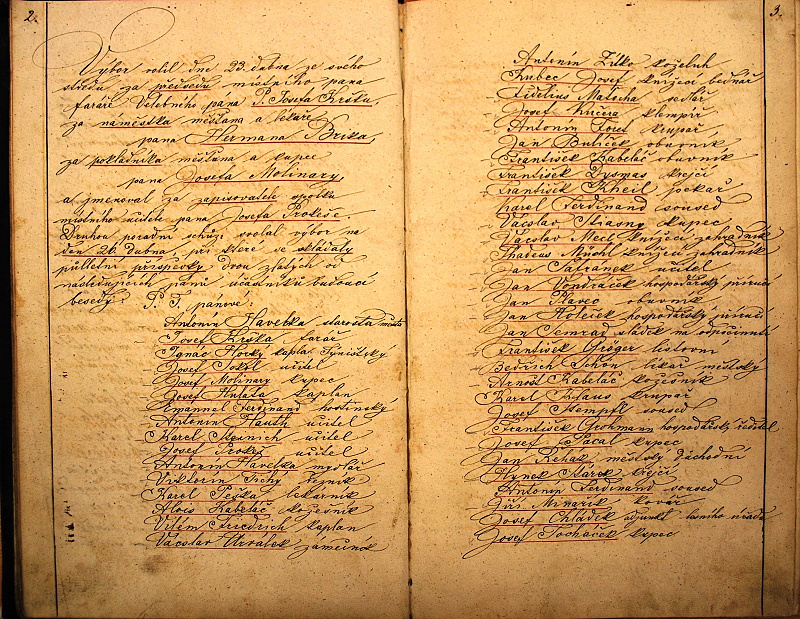 2.
Výbor volil dne 23. dubna ze svého
středu za předsedu místního pana
faráře Velebného pana P. Josefa Kršku,
za náměstka měšťana a lékaře
pana Hermana Brixa,
za pokladníka měšťana a kupce
pana Josefa Molinary,
a jmenoval za zapisovatele spolku
místního učitele pana Josefa Prokeše.
Druhou poradní schůzi svolal výbor na
den 26. dubna, při které se skládaly
půlletní příspěvky dvou zlatých od
následujících pánů účastníků budoucí
besedy: P. T. pánové:
Antonín Havelka starosta města
Josef Krška farář
Ignác Horký kaplan Týnišťský
Josef Sokol učitel
Josef Molinary kupec
Josef kaplan
Emanuel Ferdinand hostinský
Antonín Hauth učitel
Karel Sternich učitel
Josef Prokeš učitel
Antonín Havelka mydlář
Viktorin Tichý řezník
Karel Peška lékárník
Alois Kabeláč kožešník
Vilém Friedrich kaplan
Václav zámečník
3.
Antonín Zítko koželuh
Kubec Josef knížecí bednář
Fidelius Matocha sedlář
Josef Kučera klempíř
Antonín krupař
Jan Butiček obuvník
František Kabeláč obuvník
František krejčí
František Kheil pekař
Karel Ferdinand soused
Václav Šťasný kupec
Václav Mecl knížecí zahradník
Thadeus knížecí zahradník
Jan Šafránek učitel
Jan Vondráček hospodářský příručí
Jan Plavec obuvník
Jan Holeček hospodářský příručí
Jan Semrad sládek na odpočinutí
František Gröger listovní
Bedřich Schön lékař městský
Arnošt Kabeláč kožešník
Karel Klaus krupař
Josef Stempfl soused
František Grohmann hospodářský ředitel
Josef Pacal kupec
Jan Řehák městský důchodní
Hynek Štárek krejčí
Antonín Ferdinand soused
Jiří Minařík kovář
Josef Chládek adjunkt lesního úřadu
Josef Pocháček kupec